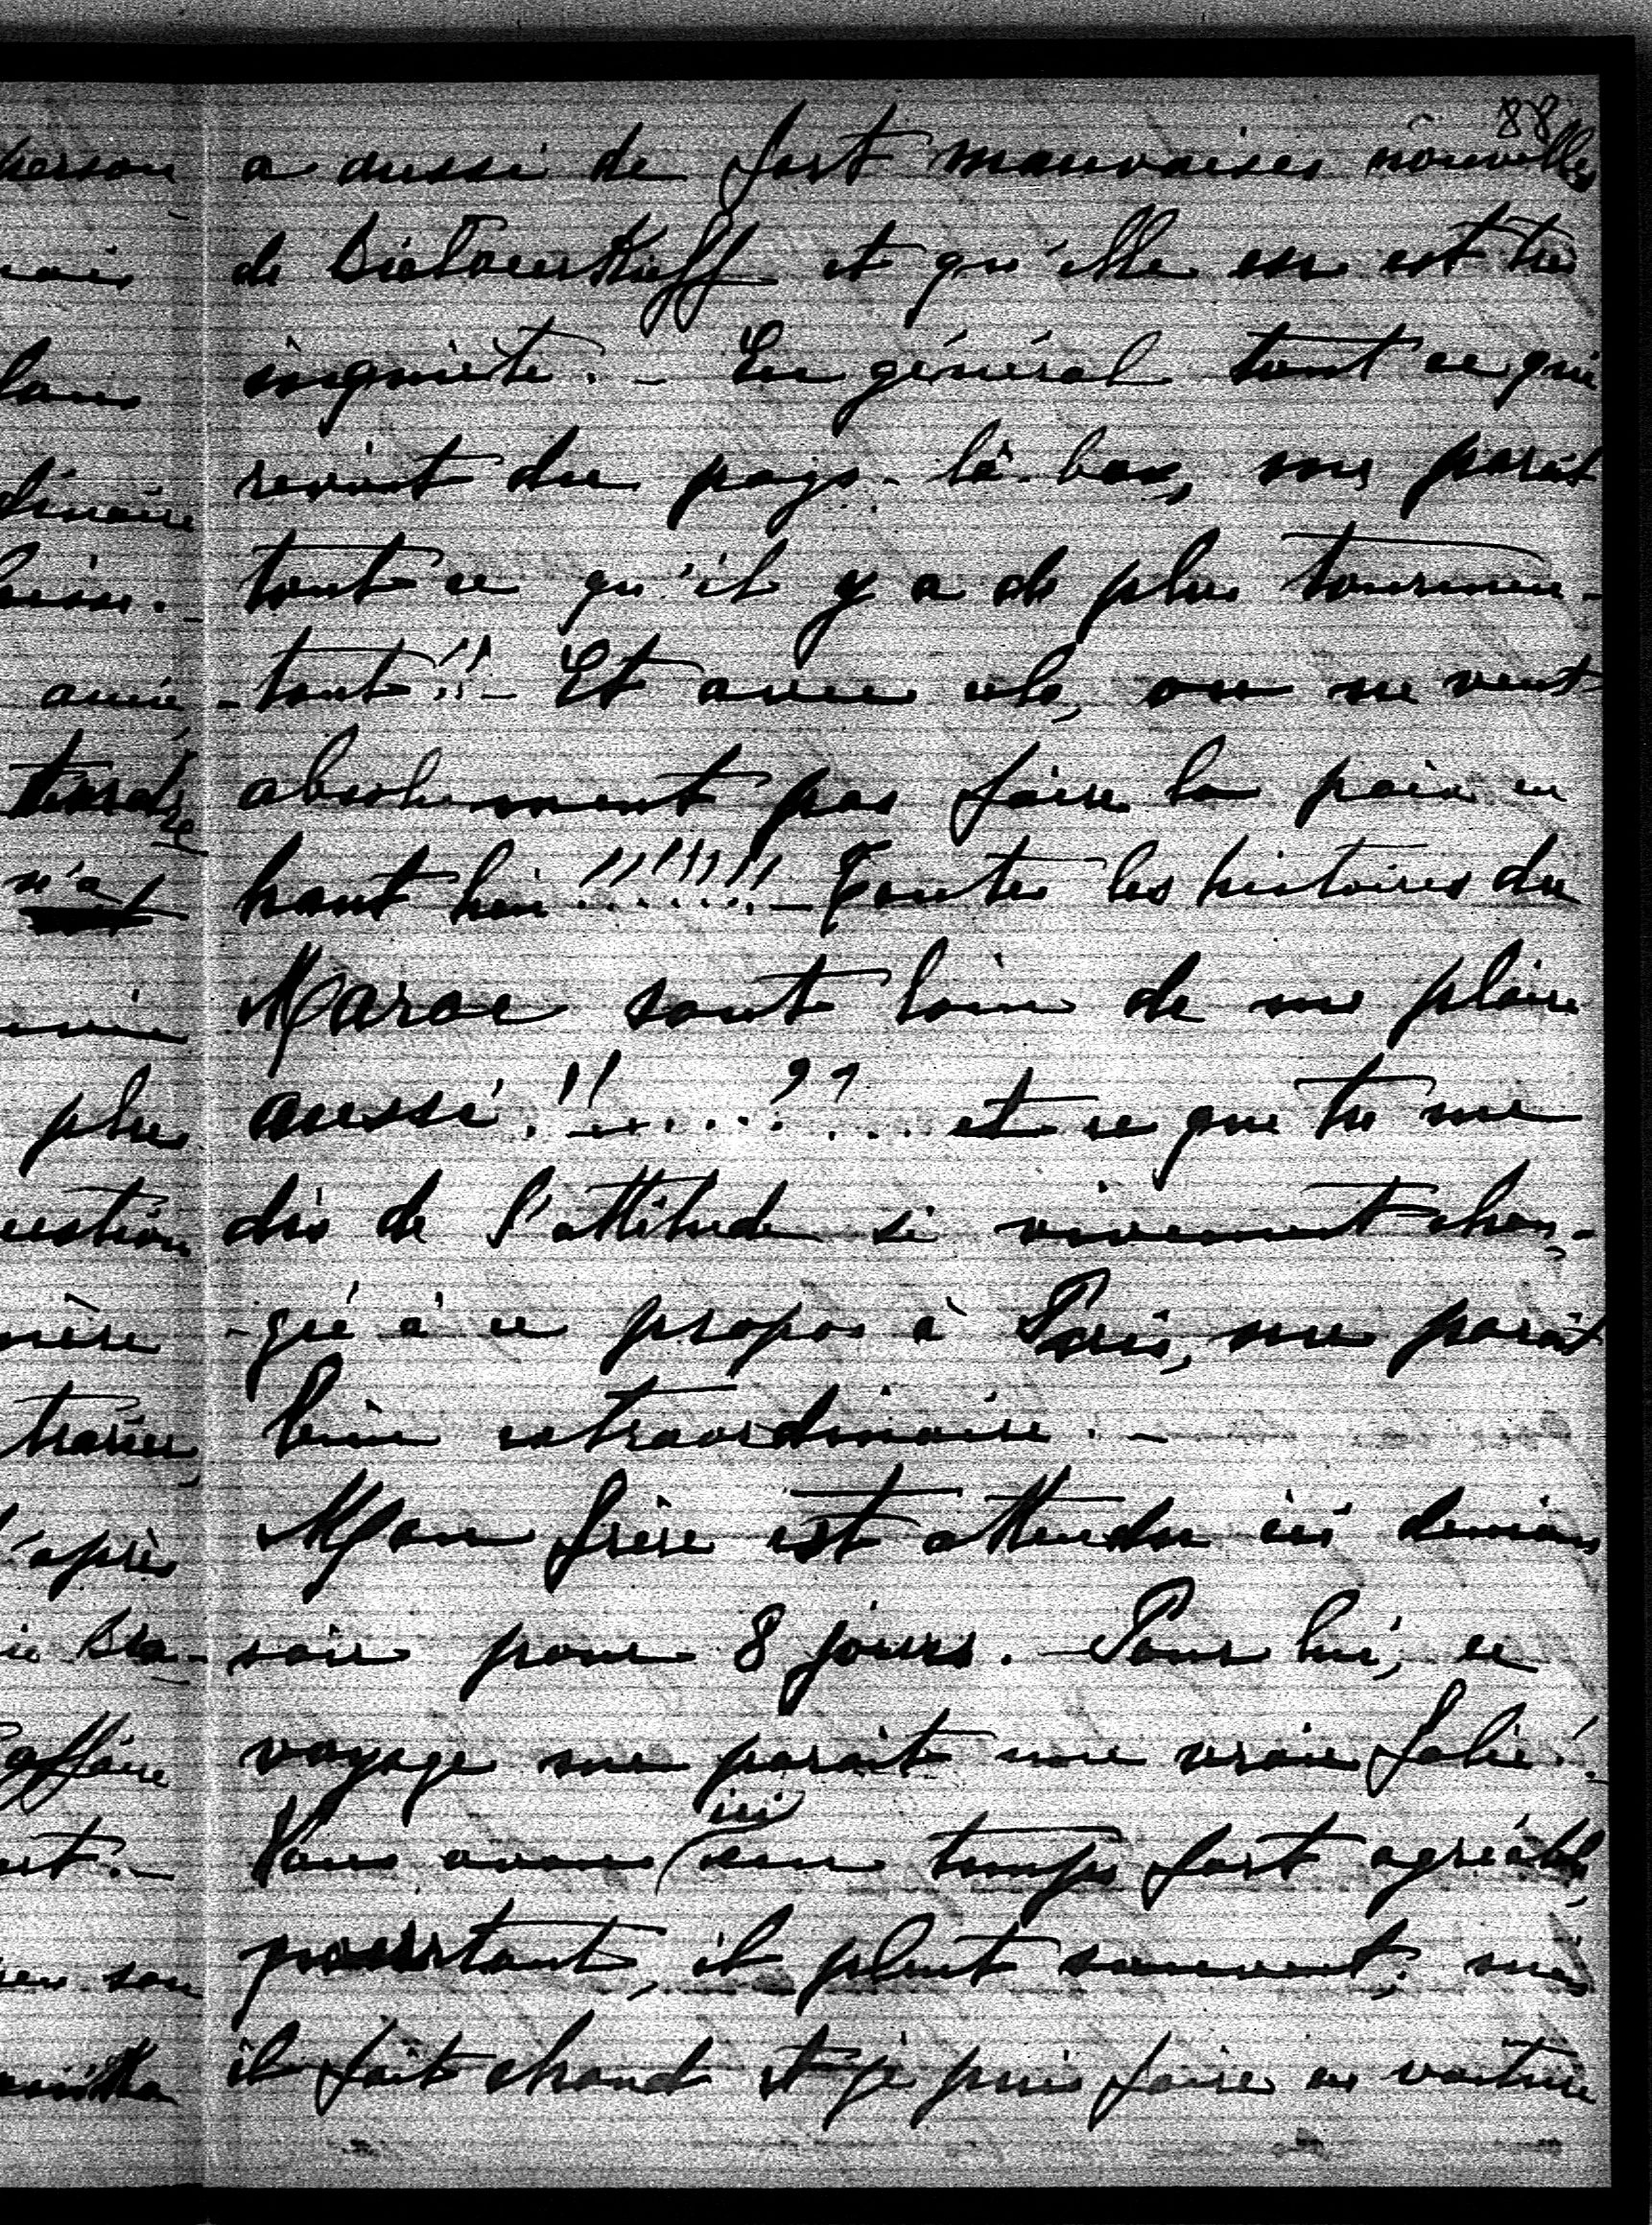 88
a aussi de fort mauvaises nouvelles
de Bietourkoff et qu'elle en est très
inquiète. - En général tout ce qui
revient du pays-là-bas, me paraît
tout ce qu'il y a de plus tourmen-
-tant!! - Et avec cela, on ne veut
absolument pas faire la paix en
haut lieu!!!!!!! - Toutes les histoires du
Maroc sont loin de me plaire
aussi!!....??... et ce que tu me
dis de l'attitude si vivement chan-
-gée à ce propos à Paris, me paraît
bien extraordinaire. -
Mon frère est attendu ici demain
soir pour 8 jours. - Pour lui, ce
voyage me paraît une vraie folie! -
Nous avons ici un temps fort agréable,
pourtant, il pleut souvent, mais
il fait chaud et je puis faire en voiture
person
dinaire
amie,
tendre
n'a
plus
question
mère
traîner,
d'après
Bra-
l'affaire
son